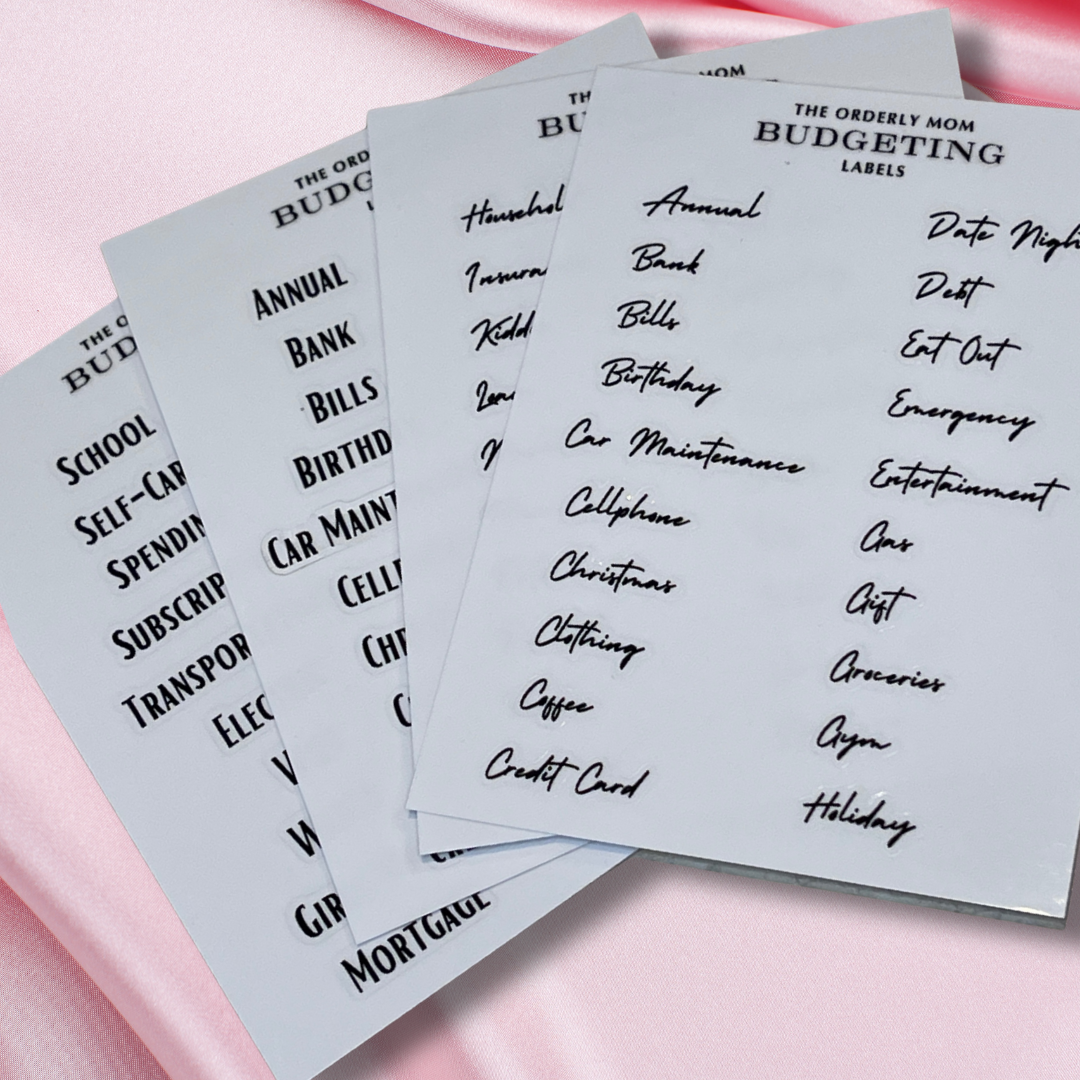 THE ORDERLY MOM
BUDGETING
LABELS
Annual
Bank
Bills
Birthday
Car Maintenance
Cellphone
Christmas
Clothing
Coffee
Credit Card
Date Nigh
Debt
Eat Out
Emergency
Entertainment
Gas
Gift
Groceries
Gym
Holiday
MOM
TH
BU
Househol
Insura
Kidd
THE ORD
BUDG
L
ANNUAL
BANK
BILLS
BIRTHD
CAR MAINT
CELL
CHR
C
THE O
BUD
SCHOOL
SELF-CAR
SPENDIN
SUBSCRIP
TRANSPOR
ELEC
W
GIR
MORTGAGE